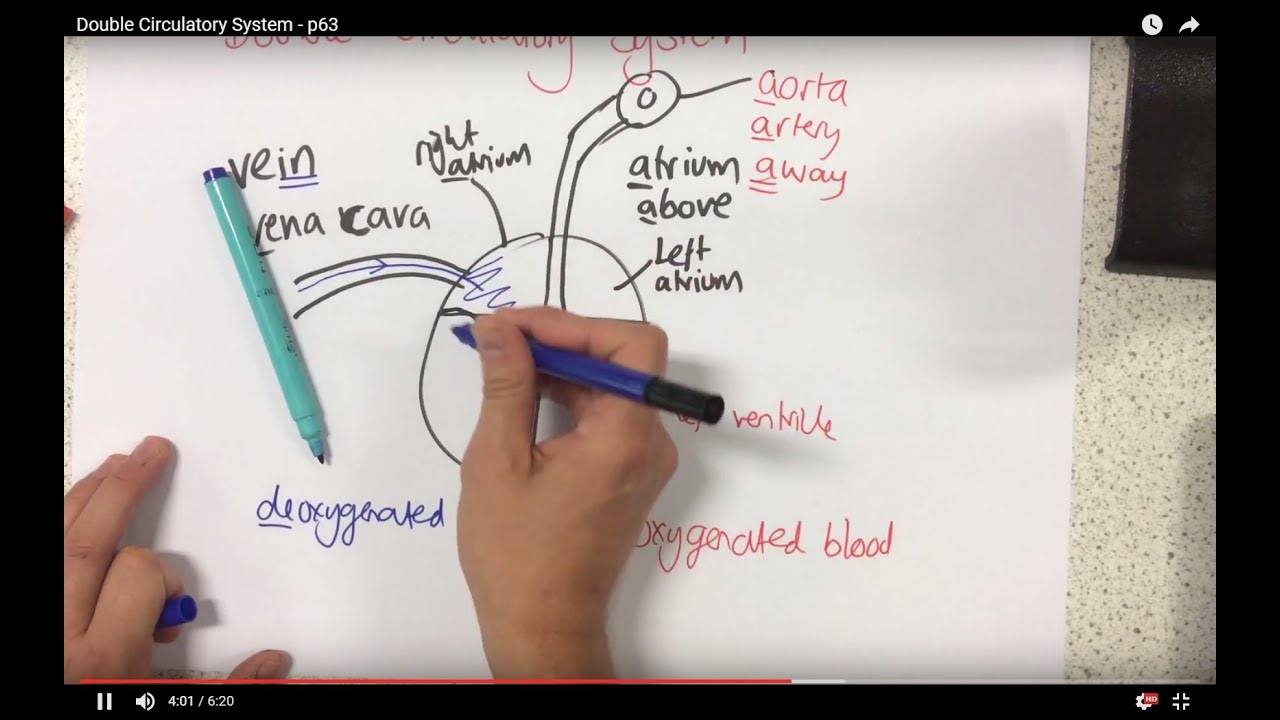 Double Circulatory System - p63
Double Circulatory System
aorta
artery
away
right
atrium
vein
atrium
above
vena cava
Left
atrium
ventricle
deoxygenated
oxygenated blood
4:01 / 6:20
HD